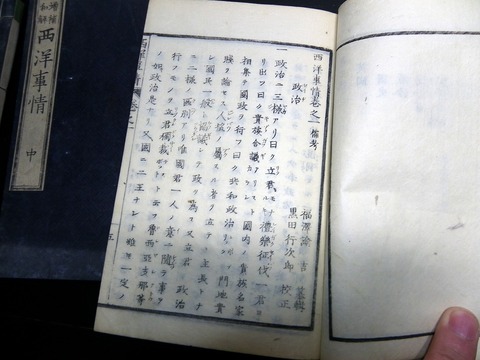 増補
和解
西洋事情
中
西洋事情巻之一 備考
福澤諭吉 纂輯
黒田行次郎 校正
政治
一政治ニ三様アリ曰ク立君 禮樂征伐一君ヨ
リ出ツ曰ク貴族合議 國内ノ貴族名家
相集テ國政ヲ行フ曰ク共和政治 門地貴
賤ヲ論セス人望ノ属スル者ヲ立テ主長トナ
シ國民一般ト協議シテ政ヲ為ス又立君ノ政治
ニ二様ノ區別アリ唯國君一人ノ意ニ随テ事ヲ
行フモノヲ立君獨裁 ト云フ魯西亜支那等
ノ如キ政治是ナリ又國ニ二王ナシト雖モ一定ノ